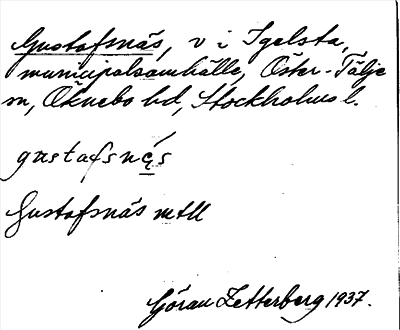 Gustafsnäs, v i Igelsta,
municipalsamhälle, Öster-Tälje
sn, Öknebo hd, Stockholms l.
gustafsnę́s
Gustafsnäs mtll
Göran Zetterberg 1937.